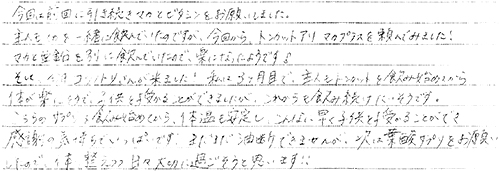 今回も前回に引き続きマカとビタミンをお願いしました。
主人も　を一緒に飲んでいたのですが、今回から、トンカットアリ マカプラスを頼んでみました!
マカと亜鉛を別に飲んでいたので、楽になったようです♪
そして、今月コウノトリさんが来ました! 私は3ヶ月目で、主人もトンカットを飲み始めてから
体が楽　そうで、子供を授かることができましたが、これからも飲み続けたいそうです。
こちらのサプリを飲み始めてから、体温も安定し、こんなに早く子供を授かることができ
感謝の気持ちでいっぱいです。まだまだ油断できませんが、次は葉酸サプリをお願い
したので、体　整えつつ 日々大切に過ごそうと思います!!